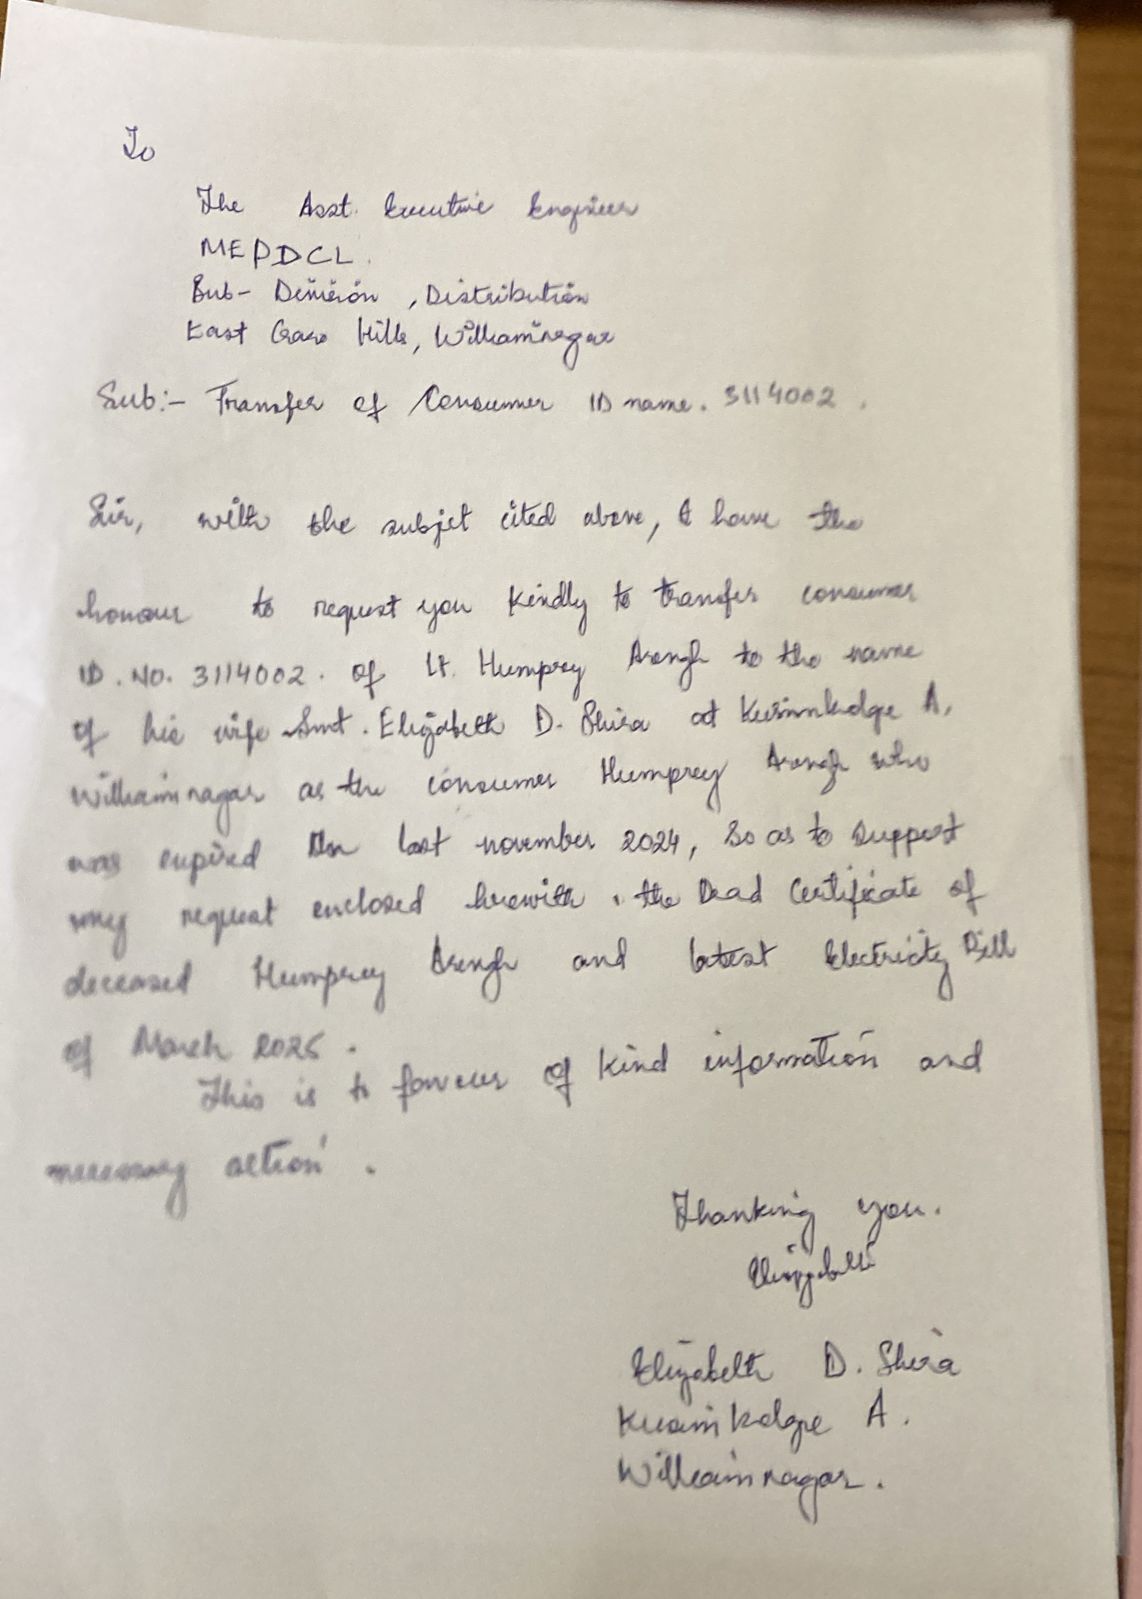 To
The Asst. Executive Engineer
MEPDCL.
Sub- Division, Distribution
East Garo Hills, Williamnagar
Sub:- Transfer of Consumer ID name. 3114002.
Sir, with the subjet cited above, I have the
honour to request you kindly to transfer consumer
ID. No. 3114002. of Lt. Humprey Arengh to the name
of his wife Smt. Elizabeth D. Shira at A,
Williamnagar as the consumer Humprey Arengh who
was expired on last november 2024, So as to Support
my request enclosed herewith, the Dead Certificate of
deceased Humprey Arengh and latest Electricity Bill
of March 2025.
This is to favour of kind information and
necessary action.
Thanking you.
Elizabeth
Elizabeth D. Shira
A.
Williamnagar.